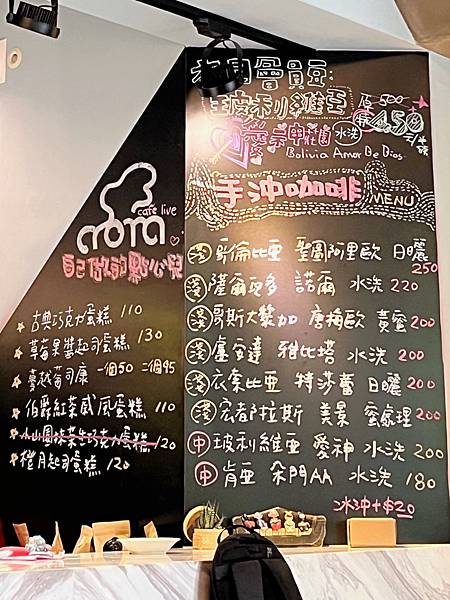 會員豆:
玻利維亞 原500
愛神莊園 水洗 特450元/半磅
Bolivia Amor De Dios
手沖咖啡 MENU
淺 哥倫比亞 聖圖阿里歐 日曬 250
淺 薩爾瓦多 諾爾 水洗 220
淺 哥斯大黎加 唐梅歐 黃蜜 200
淺 盧安達 雅比塔 水洗 200
淺 衣索比亞 特莎蕾 日曬 200
淺 宏都拉斯 美景 蜜處理 200
中 玻利維亞 愛神 水洗 200
中 肯亞 朵門AA 水洗 180
冰沖+$20
mora
café live
自己做的點心兒
古典巧克力蛋糕 110
草莓果醬起司蛋糕 130
蔓越莓司康 一個50 二個95
伯爵紅茶戚風蛋糕 110
小山園抹茶生巧克力蛋糕 120
橙月起司蛋糕 120